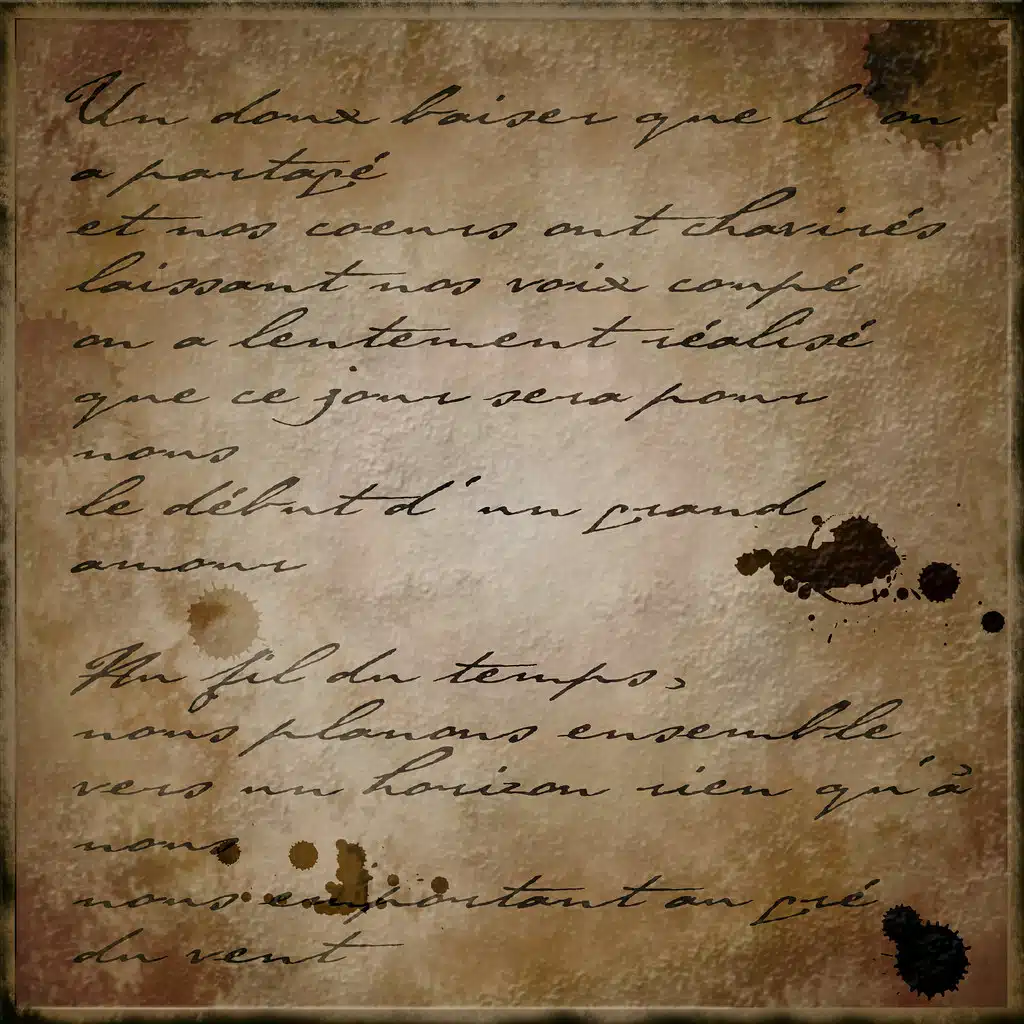 Un doux baiser que l'on
a partagé
et nos coeurs ont chavirés
laissant nos voix coupé
on a lentement réalisé
que ce jour sera pour
nous
le début d'un grand
amour
Au fil du temps,
nous planons ensemble
vers un horizon rien qu'à
nous
nous emportant au gré
du vent